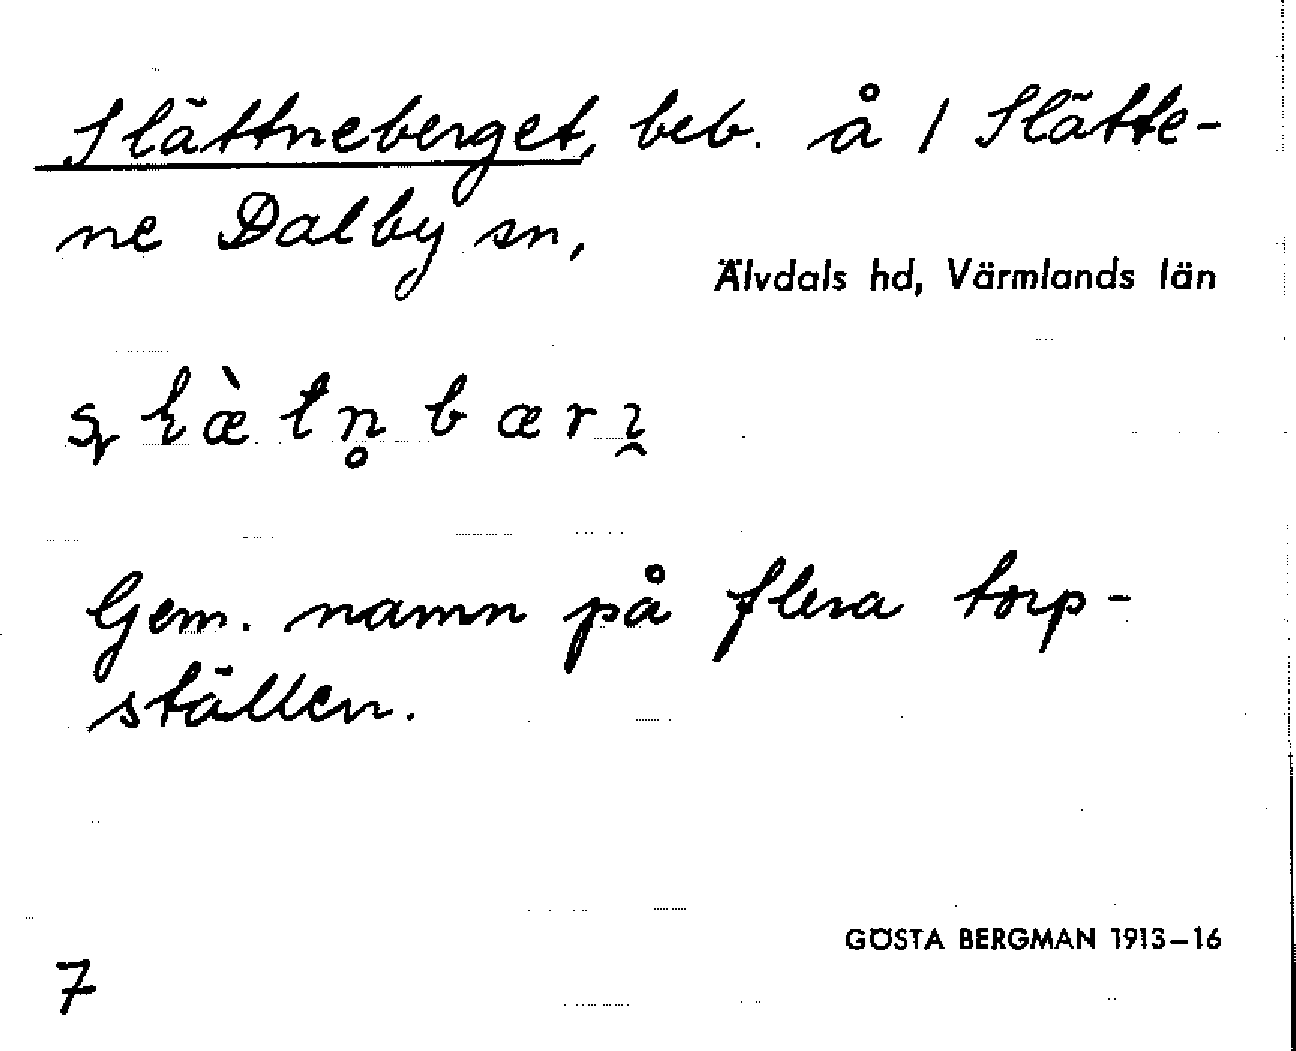 Slättneberget, beb. å 1 Slätte-
ne Dalby sn,
Älvdals hd, Värmlands län
Gem. namn på flera torp-
ställen.
GÖSTA BERGMAN 1913–16
7